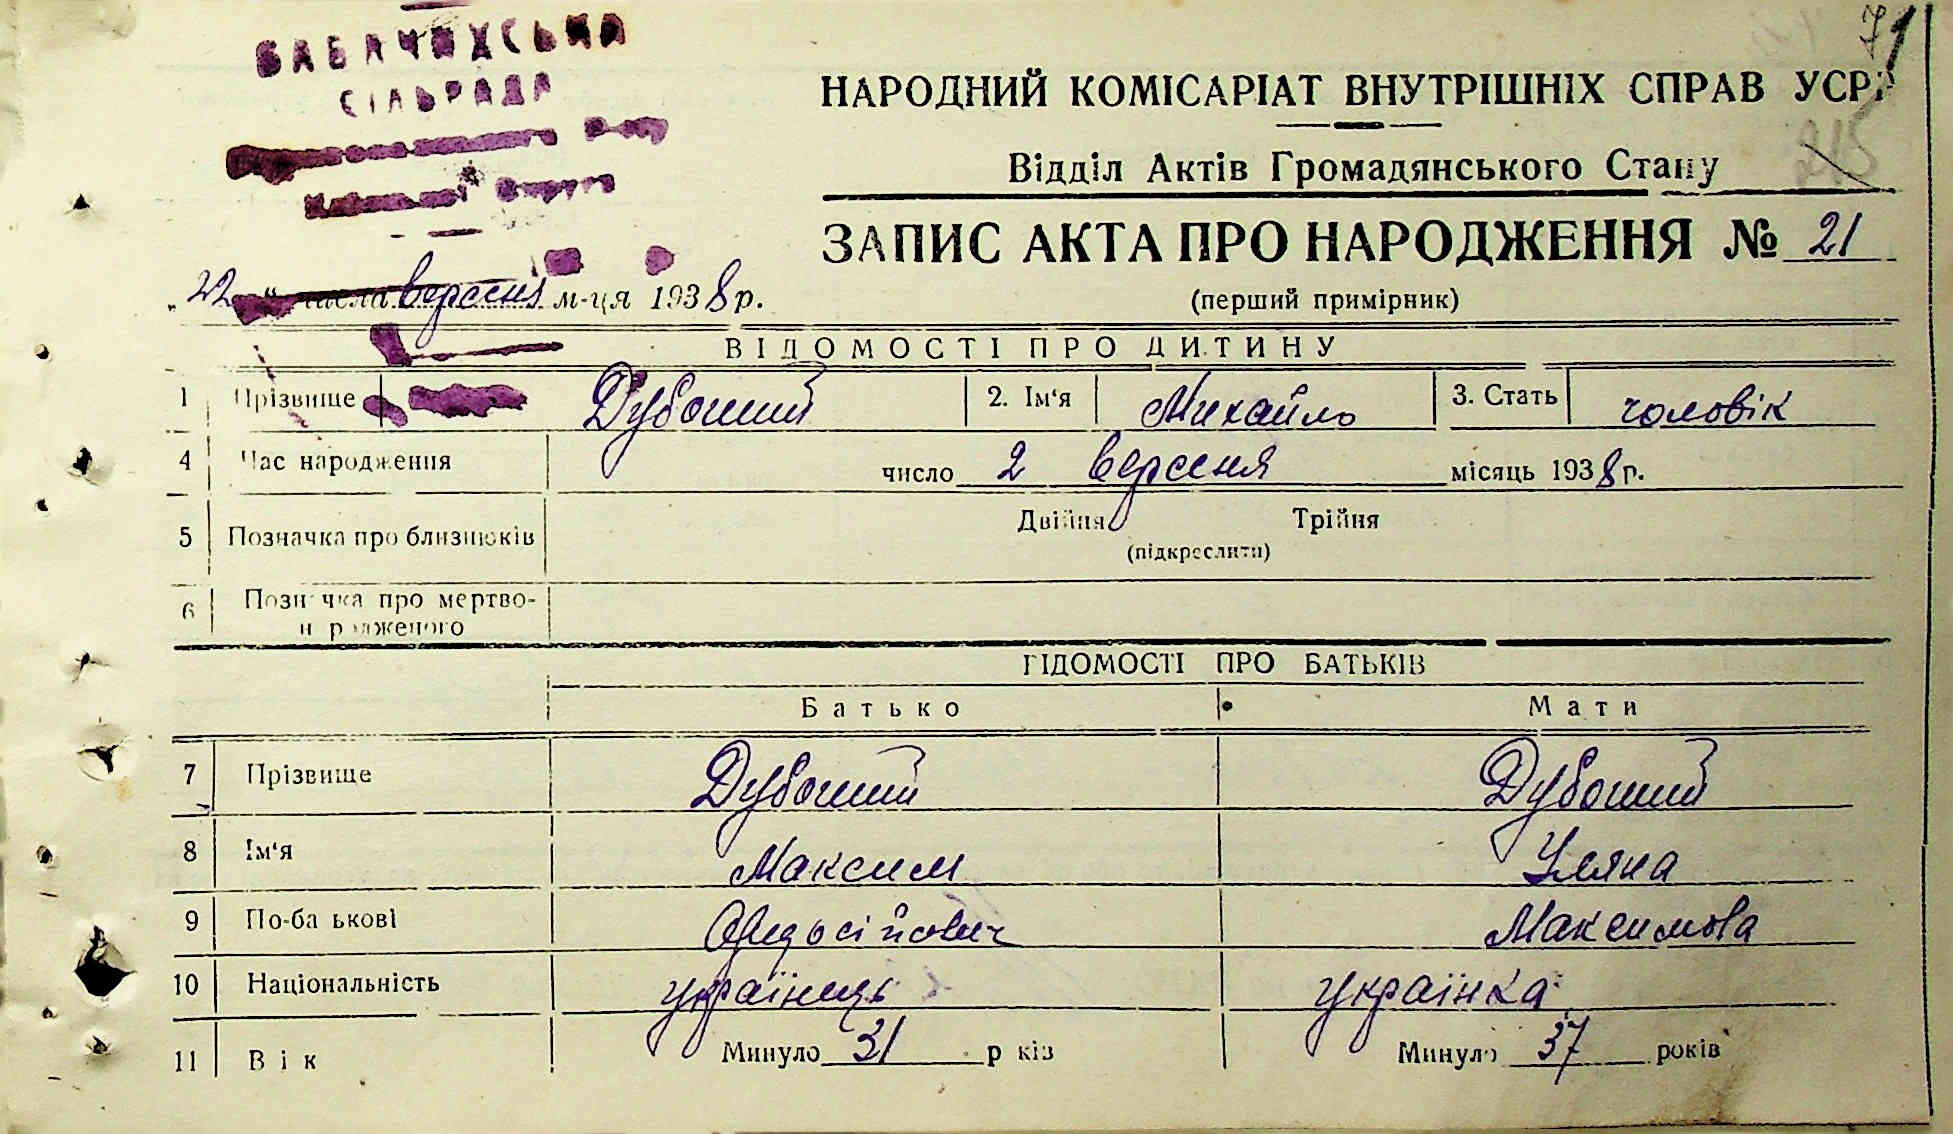 БАБАЧИХСЬКА
СІЛЬРАДА
71
НАРОДНИЙ КОМІСАРІАТ ВНУТРІШНІХ СПРАВ УСРР
Відділ Актів Громадянського Стану
ЗАПИС АКТА ПРО НАРОДЖЕННЯ № 21
(перший примірник)
„22“ числа вересня м-ця 1938 р.
ВІДОМОСТІ ПРО ДИТИНУ
1 Прізвище 2. Ім'я Михайло 3. Стать чоловік
4 Час народження число 2 вересня місяць 1938 р.
5 Позначка про близнюків Двійня Трійня
(підкреслити)
6 Позначка про мертво-
народженого
ВІДОМОСТІ ПРО БАТЬКІВ
Батько Мати
7 Прізвище
8 Ім'я Максим Уляна
9 По-батькові Максимова
10 Національність українець українка
11 Вік Минуло 31 років Минуло 37 років